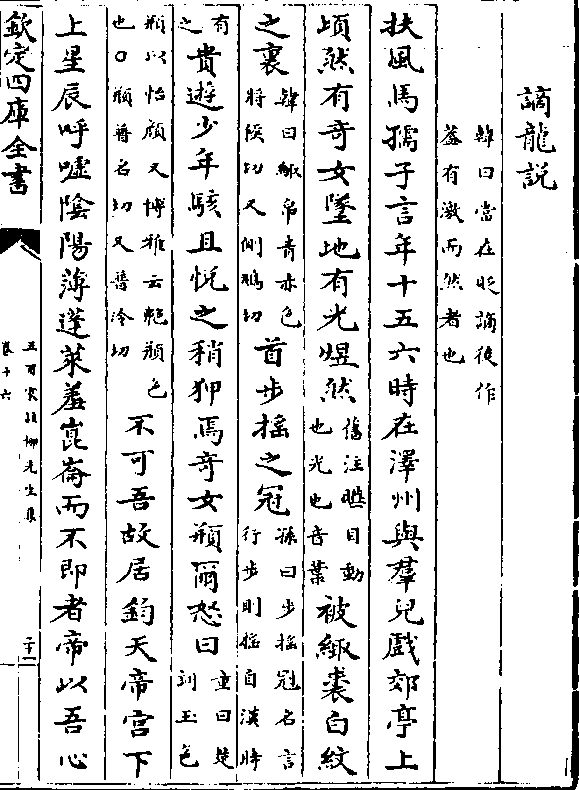 謫龍說
韓曰當在貶謫後作
蓋有激而然者也
扶風馬孺子言年十五六時在澤州與羣兒戲郊亭上
頃然有奇女墜地有光煜然舊注瞧目動也光也音葉被緅裘白紋
之裏韓曰緅帛青赤色將侯切又側鳩切首步搖之冠孫曰步搖冠名言行步則搖自漢時
有之貴遊少年駭且悅之稍狎焉奇女頩爾怒曰童曰楚詞玉色
頩以怡顏又博雅云艴頩色也○頩普名切又普冷切不可吾故居鈞天帝宮下
上星辰呼噓陰陽薄蓬萊羞崑崙而不即者帝以吾心
欽定四庫全書
五百家註柳先生集
卷十六
二十一